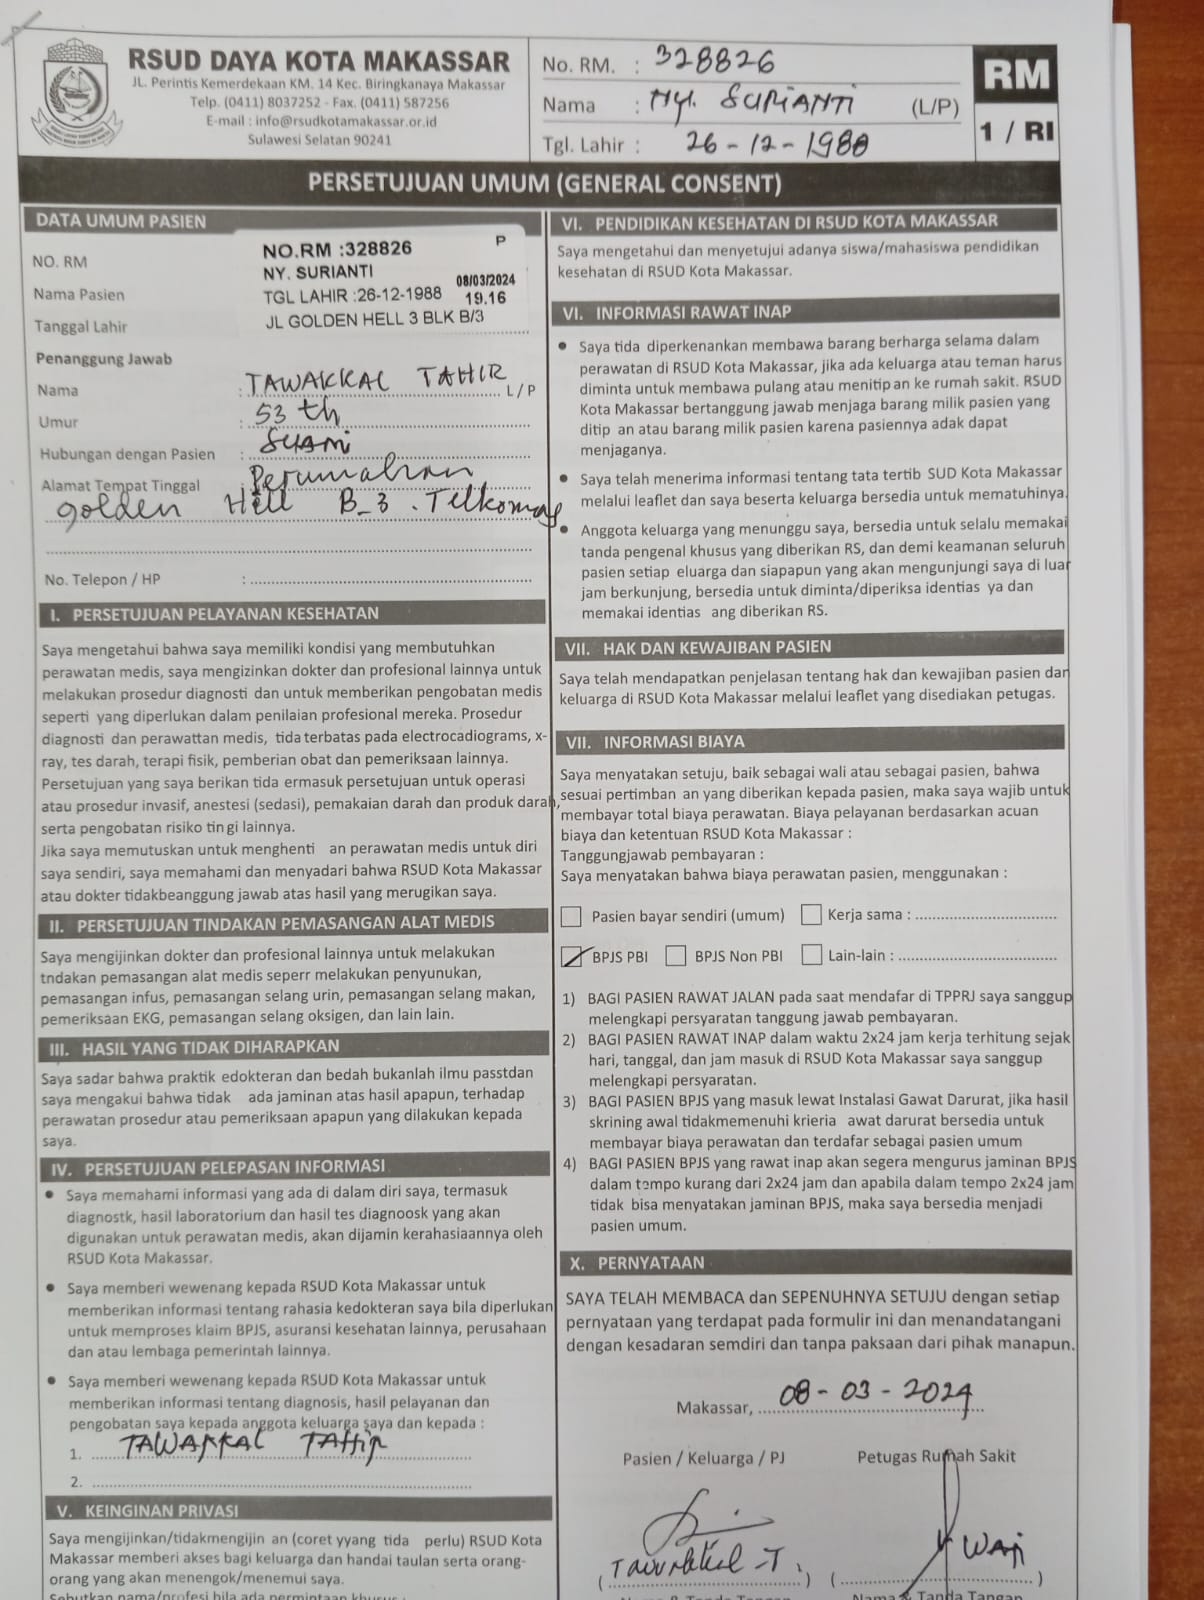 RSUD DAYA KOTA MAKASSAR
JL. Perintis Kemerdekaan KM. 14 Kec. Biringkanaya Makassar
Telp. (0411) 8037252 - Fax. (0411) 587256
E-mail : info@rsudkotamakassar.or.id
Sulawesi Selatan 90241
No. RM. : 328826
Nama : Ny. SURIANTI (L/P)
Tgl. Lahir : 26-12-1988
RM
1 / RI
PERSETUJUAN UMUM (GENERAL CONSENT)
DATA UMUM PASIEN
NO. RM
Nama Pasien
Tanggal Lahir
NO.RM :328826 P
NY. SURIANTI 08/03/2024
TGL LAHIR :26-12-1988 19.16
JL GOLDEN HELL 3 BLK B/3
Penanggung Jawab
Nama : TAWAKKAL TAHIR L / P
Umur : 53 th
Hubungan dengan Pasien : SUAMI
Alamat Tempat Tinggal : Perumahan
golden Hill B_3 . Telkomas
No. Telepon / HP :
I. PERSETUJUAN PELAYANAN KESEHATAN
Saya mengetahui bahwa saya memiliki kondisi yang membutuhkan
perawatan medis, saya mengizinkan dokter dan profesional lainnya untuk
melakukan prosedur diagnosti dan untuk memberikan pengobatan medis
seperti yang diperlukan dalam penilaian profesional mereka. Prosedur
diagnosti dan perawattan medis, tida terbatas pada electrocadiograms, x-
ray, tes darah, terapi fisik, pemberian obat dan pemeriksaan lainnya.
Persetujuan yang saya berikan tida ermasuk persetujuan untuk operasi
atau prosedur invasif, anestesi (sedasi), pemakaian darah dan produk darah,
serta pengobatan risiko tin gi lainnya.
Jika saya memutuskan untuk menghenti an perawatan medis untuk diri
saya sendiri, saya memahami dan menyadari bahwa RSUD Kota Makassar
atau dokter tidakbeanggung jawab atas hasil yang merugikan saya.
II. PERSETUJUAN TINDAKAN PEMASANGAN ALAT MEDIS
Saya mengijinkan dokter dan profesional lainnya untuk melakukan
tndakan pemasangan alat medis seperr melakukan penyunukan,
pemasangan infus, pemasangan selang urin, pemasangan selang makan,
pemeriksaan EKG, pemasangan selang oksigen, dan lain lain.
III. HASIL YANG TIDAK DIHARAPKAN
Saya sadar bahwa praktik edokteran dan bedah bukanlah ilmu passtdan
saya mengakui bahwa tidak ada jaminan atas hasil apapun, terhadap
perawatan prosedur atau pemeriksaan apapun yang dilakukan kepada
saya.
IV. PERSETUJUAN PELEPASAN INFORMASI
• Saya memahami informasi yang ada di dalam diri saya, termasuk
diagnostk, hasil laboratorium dan hasil tes diagnoosk yang akan
digunakan untuk perawatan medis, akan dijamin kerahasiaannya oleh
RSUD Kota Makassar.
• Saya memberi wewenang kepada RSUD Kota Makassar untuk
memberikan informasi tentang rahasia kedokteran saya bila diperlukan
untuk memproses klaim BPJS, asuransi kesehatan lainnya, perusahaan
dan atau lembaga pemerintah lainnya.
• Saya memberi wewenang kepada RSUD Kota Makassar untuk
memberikan informasi tentang diagnosis, hasil pelayanan dan
pengobatan saya kepada anggota keluarga saya dan kepada :
1. TAWAKKAL TAHIR
2.
V. KEINGINAN PRIVASI
Saya mengijinkan/tidakmengijin an (coret yyang tida perlu) RSUD Kota
Makassar memberi akses bagi keluarga dan handai taulan serta orang-
orang yang akan menengok/menemui saya.
Sebutkan nama/profesi bila ada permintaan khusus :
VI. PENDIDIKAN KESEHATAN DI RSUD KOTA MAKASSAR
Saya mengetahui dan menyetujui adanya siswa/mahasiswa pendidikan
kesehatan di RSUD Kota Makassar.
VI. INFORMASI RAWAT INAP
• Saya tida diperkenankan membawa barang berharga selama dalam
perawatan di RSUD Kota Makassar, jika ada keluarga atau teman harus
diminta untuk membawa pulang atau menitip an ke rumah sakit. RSUD
Kota Makassar bertanggung jawab menjaga barang milik pasien yang
ditip an atau barang milik pasien karena pasiennya adak dapat
menjaganya.
• Saya telah menerima informasi tentang tata tertib SUD Kota Makassar
melalui leaflet dan saya beserta keluarga bersedia untuk mematuhinya.
• Anggota keluarga yang menunggu saya, bersedia untuk selalu memakai
tanda pengenal khusus yang diberikan RS, dan demi keamanan seluruh
pasien setiap eluarga dan siapapun yang akan mengunjungi saya di luar
jam berkunjung, bersedia untuk diminta/diperiksa identias ya dan
memakai identias ang diberikan RS.
VII. HAK DAN KEWAJIBAN PASIEN
Saya telah mendapatkan penjelasan tentang hak dan kewajiban pasien dan
keluarga di RSUD Kota Makassar melalui leaflet yang disediakan petugas.
VII. INFORMASI BIAYA
Saya menyatakan setuju, baik sebagai wali atau sebagai pasien, bahwa
sesuai pertimban an yang diberikan kepada pasien, maka saya wajib untuk
membayar total biaya perawatan. Biaya pelayanan berdasarkan acuan
biaya dan ketentuan RSUD Kota Makassar :
Tanggungjawab pembayaran :
Saya menyatakan bahwa biaya perawatan pasien, menggunakan :
Pasien bayar sendiri (umum) Kerja sama :
BPJS PBI BPJS Non PBI Lain-lain :
1) BAGI PASIEN RAWAT JALAN pada saat mendafar di TPPRJ saya sanggup
melengkapi persyaratan tanggung jawab pembayaran.
2) BAGI PASIEN RAWAT INAP dalam waktu 2x24 jam kerja terhitung sejak
hari, tanggal, dan jam masuk di RSUD Kota Makassar saya sanggup
melengkapi persyaratan.
3) BAGI PASIEN BPJS yang masuk lewat Instalasi Gawat Darurat, jika hasil
skrining awal tidakmemenuhi krieria awat darurat bersedia untuk
membayar biaya perawatan dan terdafar sebagai pasien umum
4) BAGI PASIEN BPJS yang rawat inap akan segera mengurus jaminan BPJS
dalam tempo kurang dari 2x24 jam dan apabila dalam tempo 2x24 jam
tidak bisa menyatakan jaminan BPJS, maka saya bersedia menjadi
pasien umum.
X. PERNYATAAN
SAYA TELAH MEMBACA dan SEPENUHNYA SETUJU dengan setiap
pernyataan yang terdapat pada formulir ini dan menandatangani
dengan kesadaran semdiri dan tanpa paksaan dari pihak manapun.
Makassar, 08-03-2024
Pasien / Keluarga / PJ Petugas Rumah Sakit
(Tawakkal-T.) ( )
Nama & Tanda Tangan Nama & Tanda Tangan